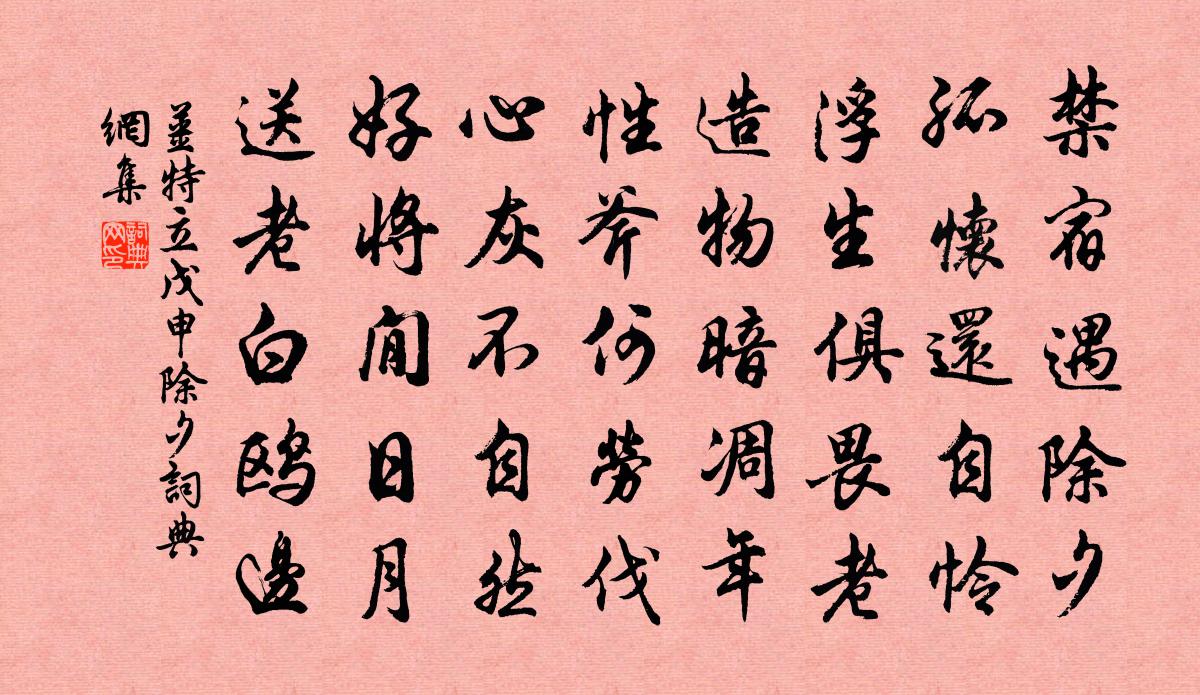 禁宿遇除夕
孤懷還自憐
浮生俱畏老
造物暗凋年
性斧何勞伐
心灰不自然
好將閒日月
送老白鷗邊
薑特立戊申除夕詞典
網集
詞典
网印